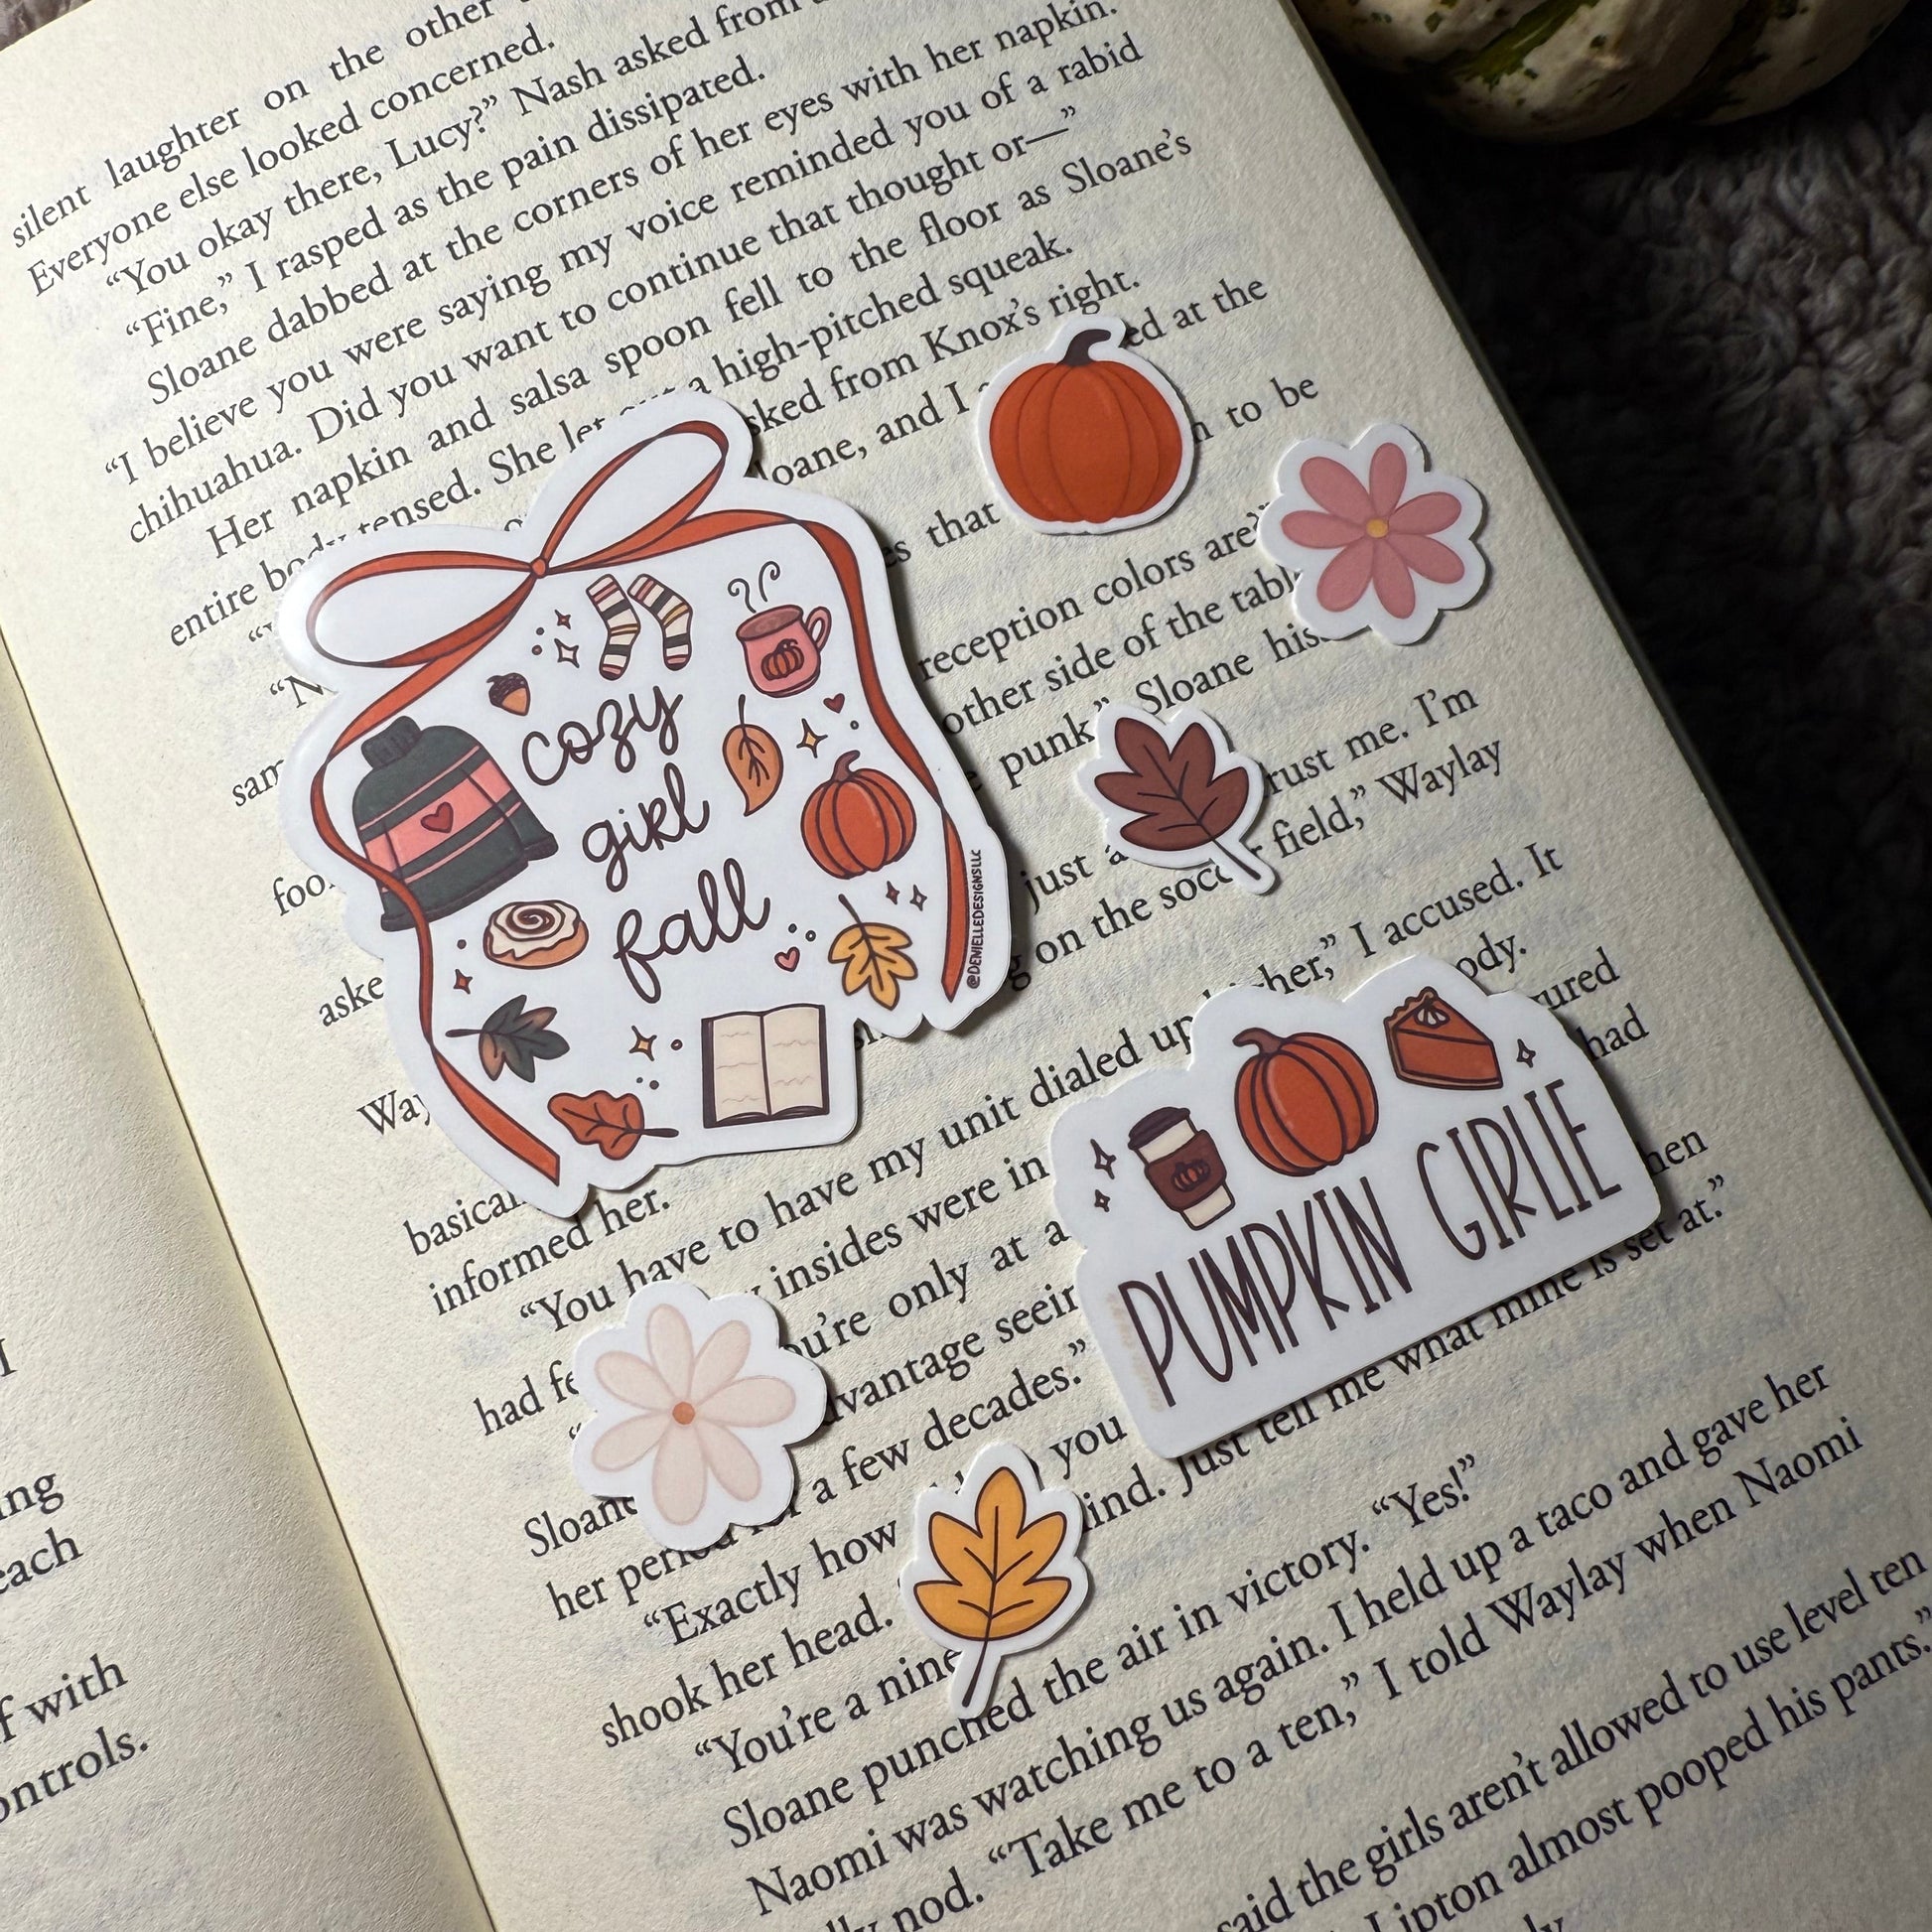 silent laughter on the other
Everyone else looked concerned.
“You okay there, Lucy?” Nash asked from
“Fine,” I rasped as the pain dissipated.
Sloane dabbed at the corners of her eyes with her napkin.
“I believe you were saying my voice reminded you of a rabid
chihuahua. Did you want to continue that thought or—”
Her napkin and salsa spoon fell to the floor as Sloane’s
entire body tensed. She let out a high-pitched squeak.
asked from Knox’s right.
“N
loane, and I
ed at the
sam
es that
to be
reception colors are
other side of the tabl
foo
punk.” Sloane his
rust me. I’m
aske
just a
field,” Waylay
g on the socc
Way
her,” I accused. It
ody.
basical
dialed up
ured
informed her.
had
“You have to have my unit
insides were in
had fe
ou’re only at a
hen
dvantage seein
what mine is set at.”
Sloane
her period for a few decades.”
“Exactly how
you
shook her head.
ind. Just tell me
“You’re a nine
Sloane punched the air in victory. “Yes!”
Naomi was watching us again. I held up a taco and gave her
nod. “Take me to a ten,” I told Waylay when Naomi
said the girls aren’t allowed to use level ten
Lipton almost pooped his pants.”
ing
each
f with
ontrols.
cozy
girl
fall
@DENIELLEDESIGNSLLC
PUMPKIN GIRLIE